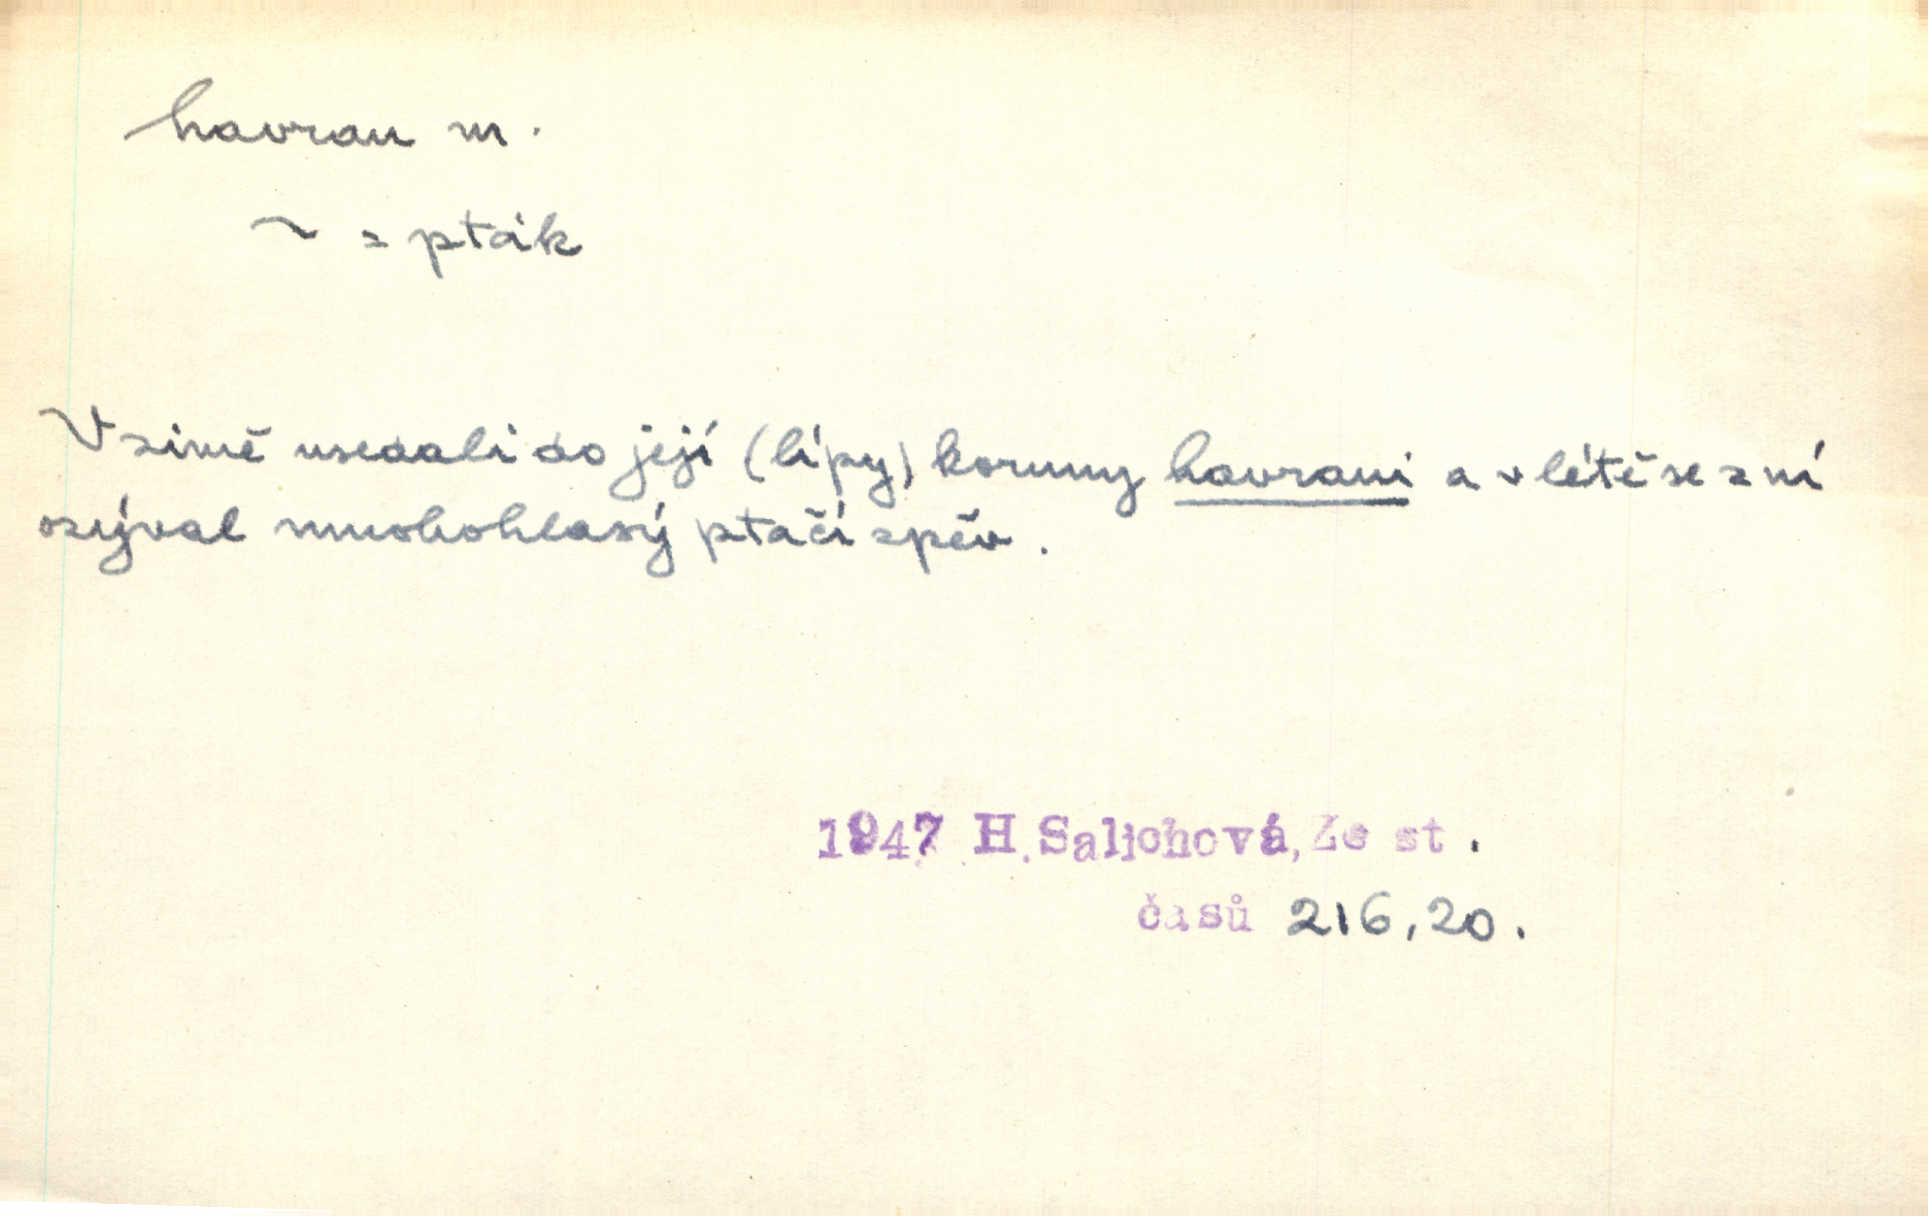 havran m.
~ = pták
V zimě usedali do její (lípy) koruny havrani a v létě se z ní
ozýval mnohohlasý ptačí zpěv.
1947 H.Salichová, Ze st.
časů 216,20.